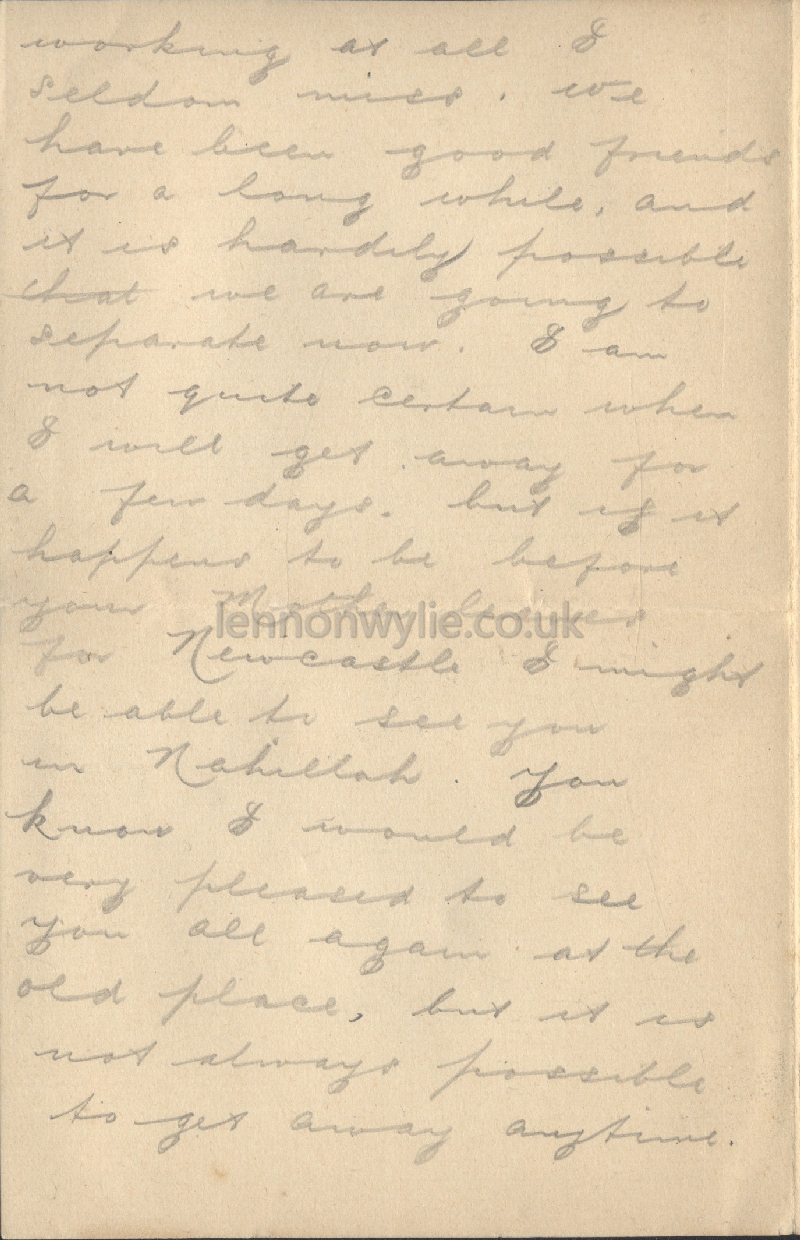 working at all I
seldom miss. We
have been good friends
for a long while, and
it is hardily possible
that we are going to
separate now. I am
not quite certain when
I will get away for
a few days. but if it
happens to be before
your Mother leaves
lennonwylie.co.uk
for Newcastle I might
be able to see you
in Nahillah. You
know I would be
very pleased to see
you all again at the
old place, but it is
not always possible
to get away anytime.